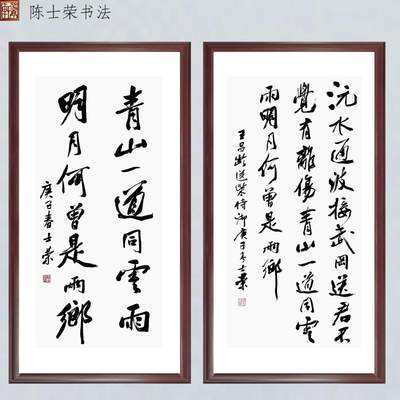 陈士荣书法
青山一道同雲雨
明月何曾是兩鄉
庚子春士榮
沅水通波接武岡送君不
覺有離傷青山一道同雲
雨明月何曾是兩鄉
王昌齡送柴侍御庚子年士榮